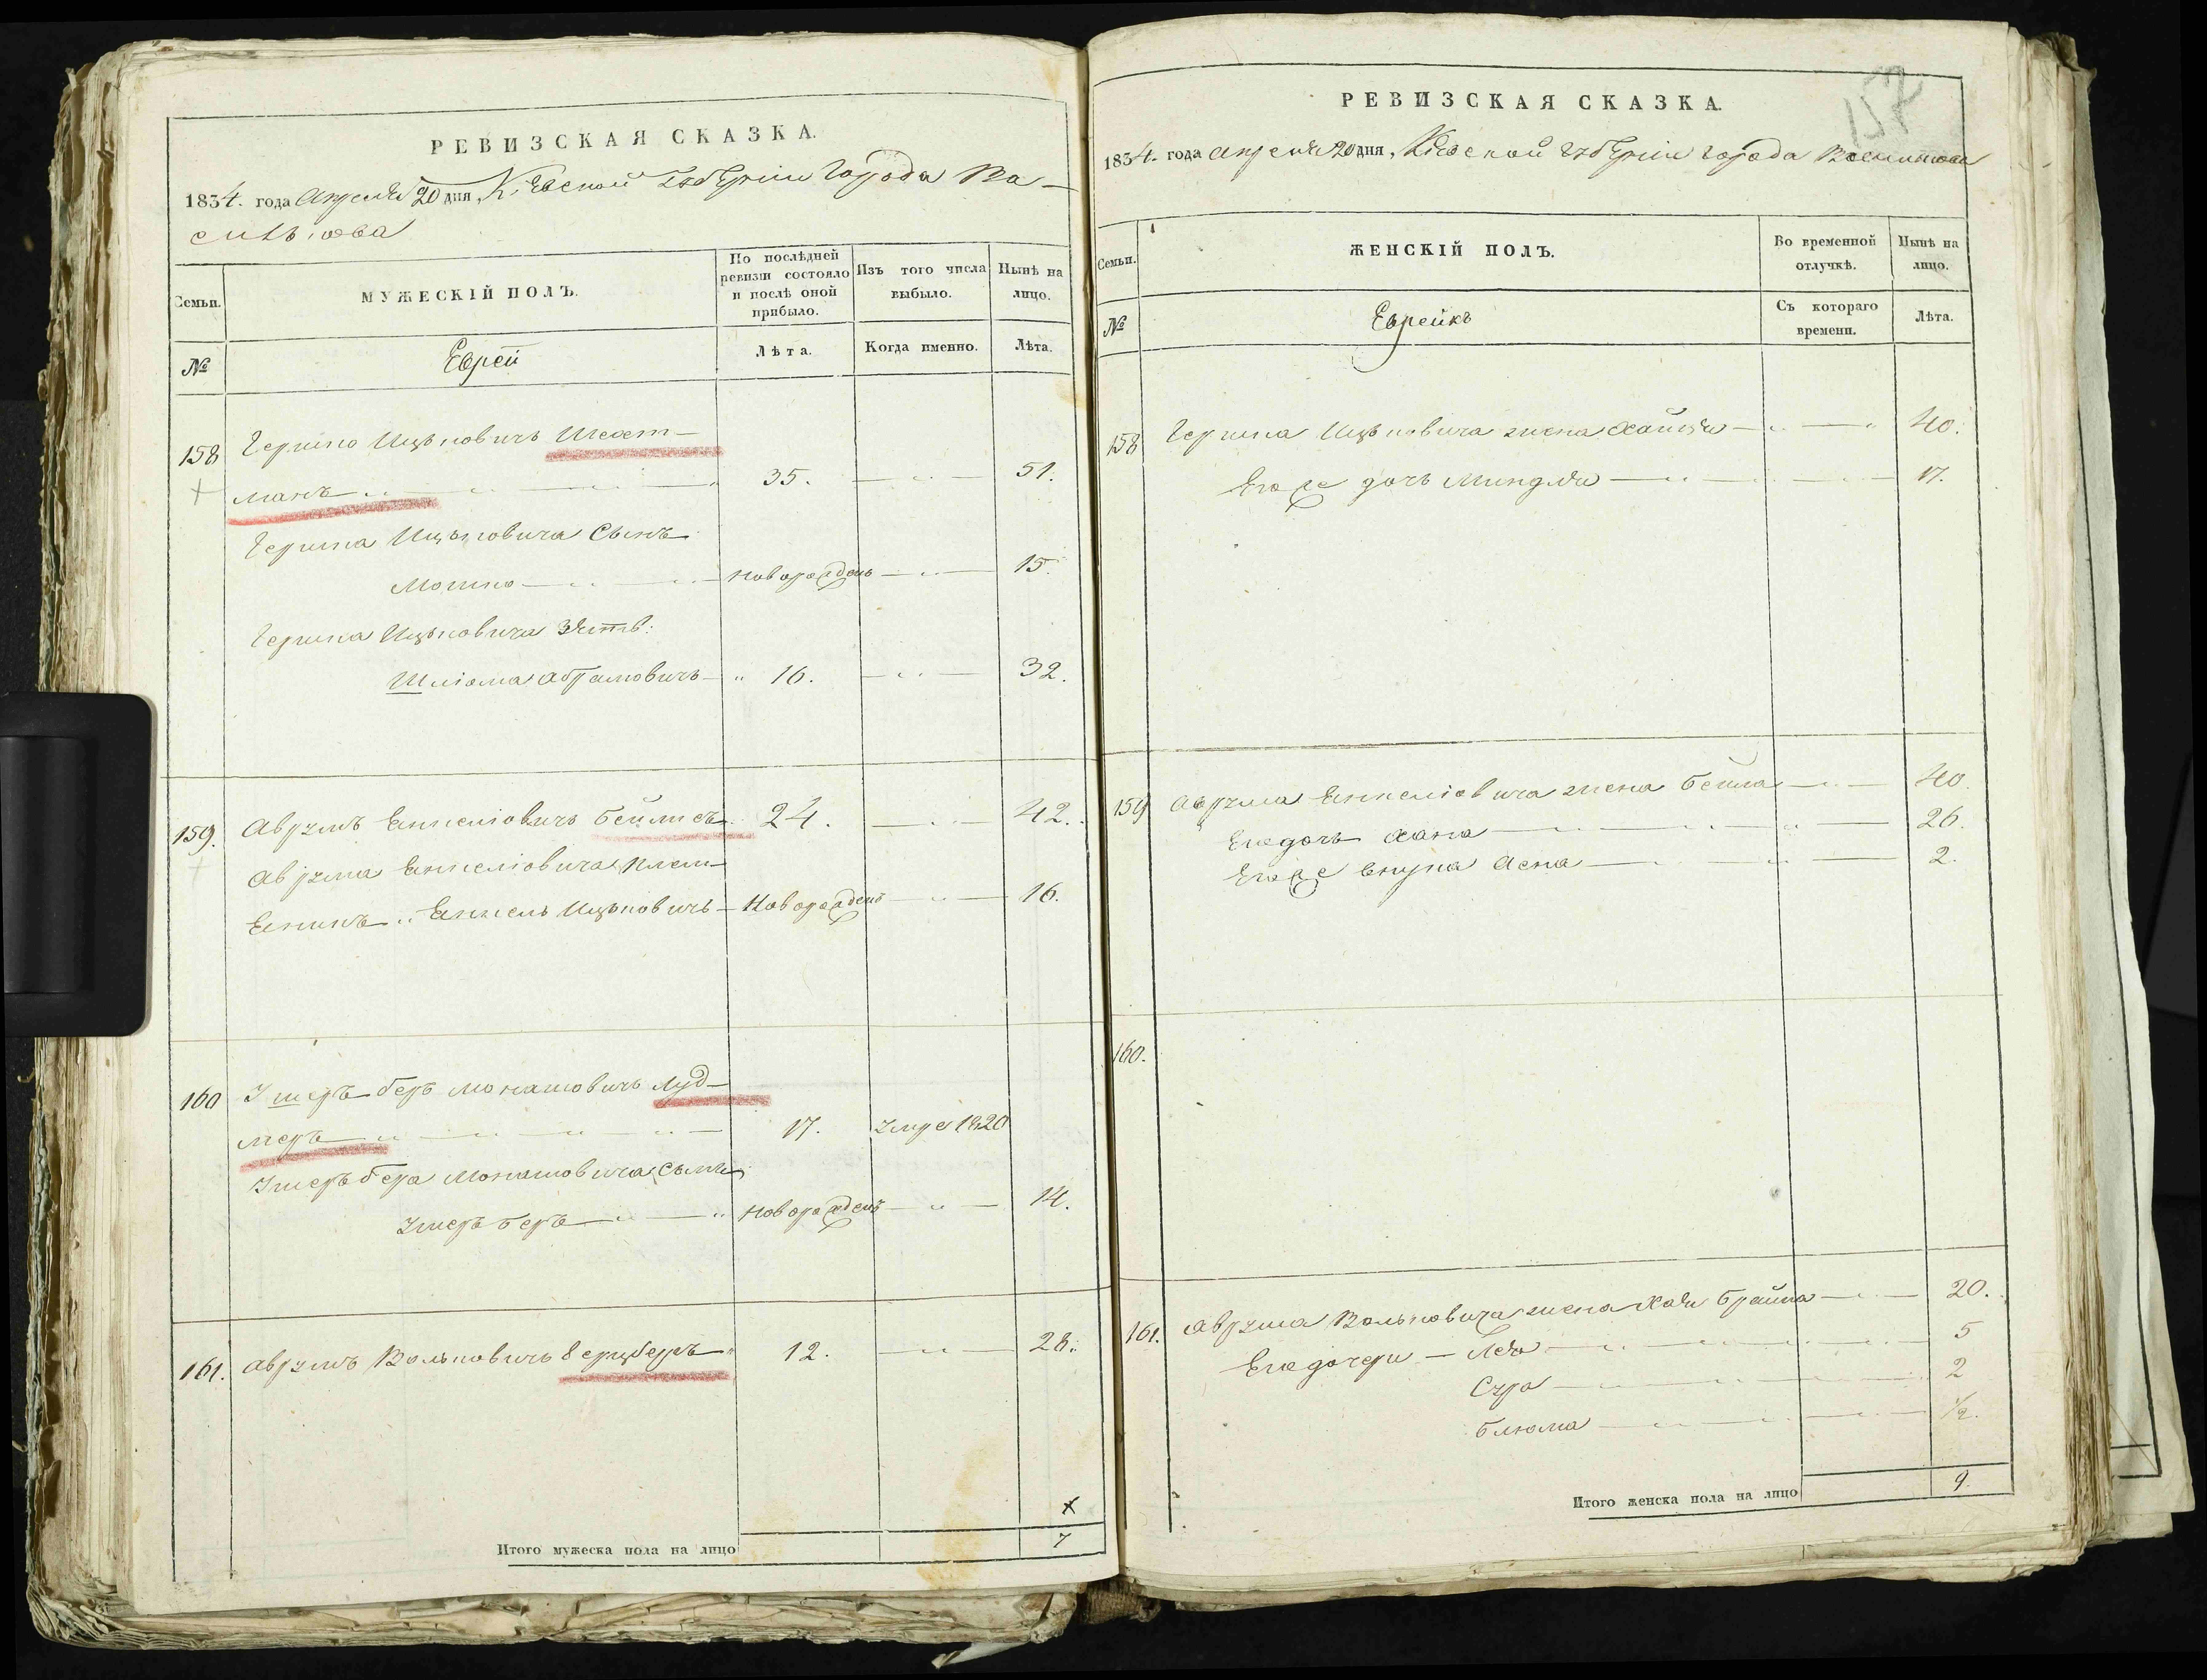 РЕВИЗСКАЯ СКАЗКА.
1834. года Апреля 20 дня, Кіевской Губерніи города Ва-
силькова
Семьи.
МУЖЕСКІЙ ПОЛЪ.
По послѣдней ревизіи состояло и послѣ оной прибыло.
Изъ того числа выбыло.
Нынѣ на лицо.
№
Еврей
Лѣта.
Когда именно.
Лѣта.
158 Гершко Ицьковичъ Шехт-
манъ 35. 51.
Гершка Ицьковича Сынъ
Мошко новорожденъ 15.
Гершка Ицьковича Зять:
Шліома Абрамовичъ 16. 32.
159. Аврумъ Янкеліовичъ Бейлисъ 24. 42.
Аврума Янкеліовича плем-
янникъ Янкель Ицьковичъ Новорожденъ 16.
160 Ушеръ беръ Монашовичъ Луд-
меръ 17. умре 1820
Ушеръ бера Монашовича Сынъ
Ушеръ беръ новорожденъ 14.
161. Аврумъ Вольковичъ Герцберъ 12. 28.
Итого мужеска пола на лицо 7
157
РЕВИЗСКАЯ СКАЗКА.
1834. года Апреля 20 дня, Кіевской Губерніи города Василькова
Семьи.
ЖЕНСКІЙ ПОЛЪ.
Во временной отлучкѣ.
Нынѣ на лицо.
№
Еврейкъ
Съ котораго времени.
Лѣта.
158 Гершка Ицьковича жена 40.
Его же дочь Миндля 17.
159 Аврума Янкеліовича жена Бейла 40.
Его дочь Хана 26.
Его же внука Асна 2.
160.
161. Аврума Вольковича жена Хая Брайна 20.
Его дочери — Лея 5
Сура 2
Блюма 1/2.
Итого женска пола на лицо 9.